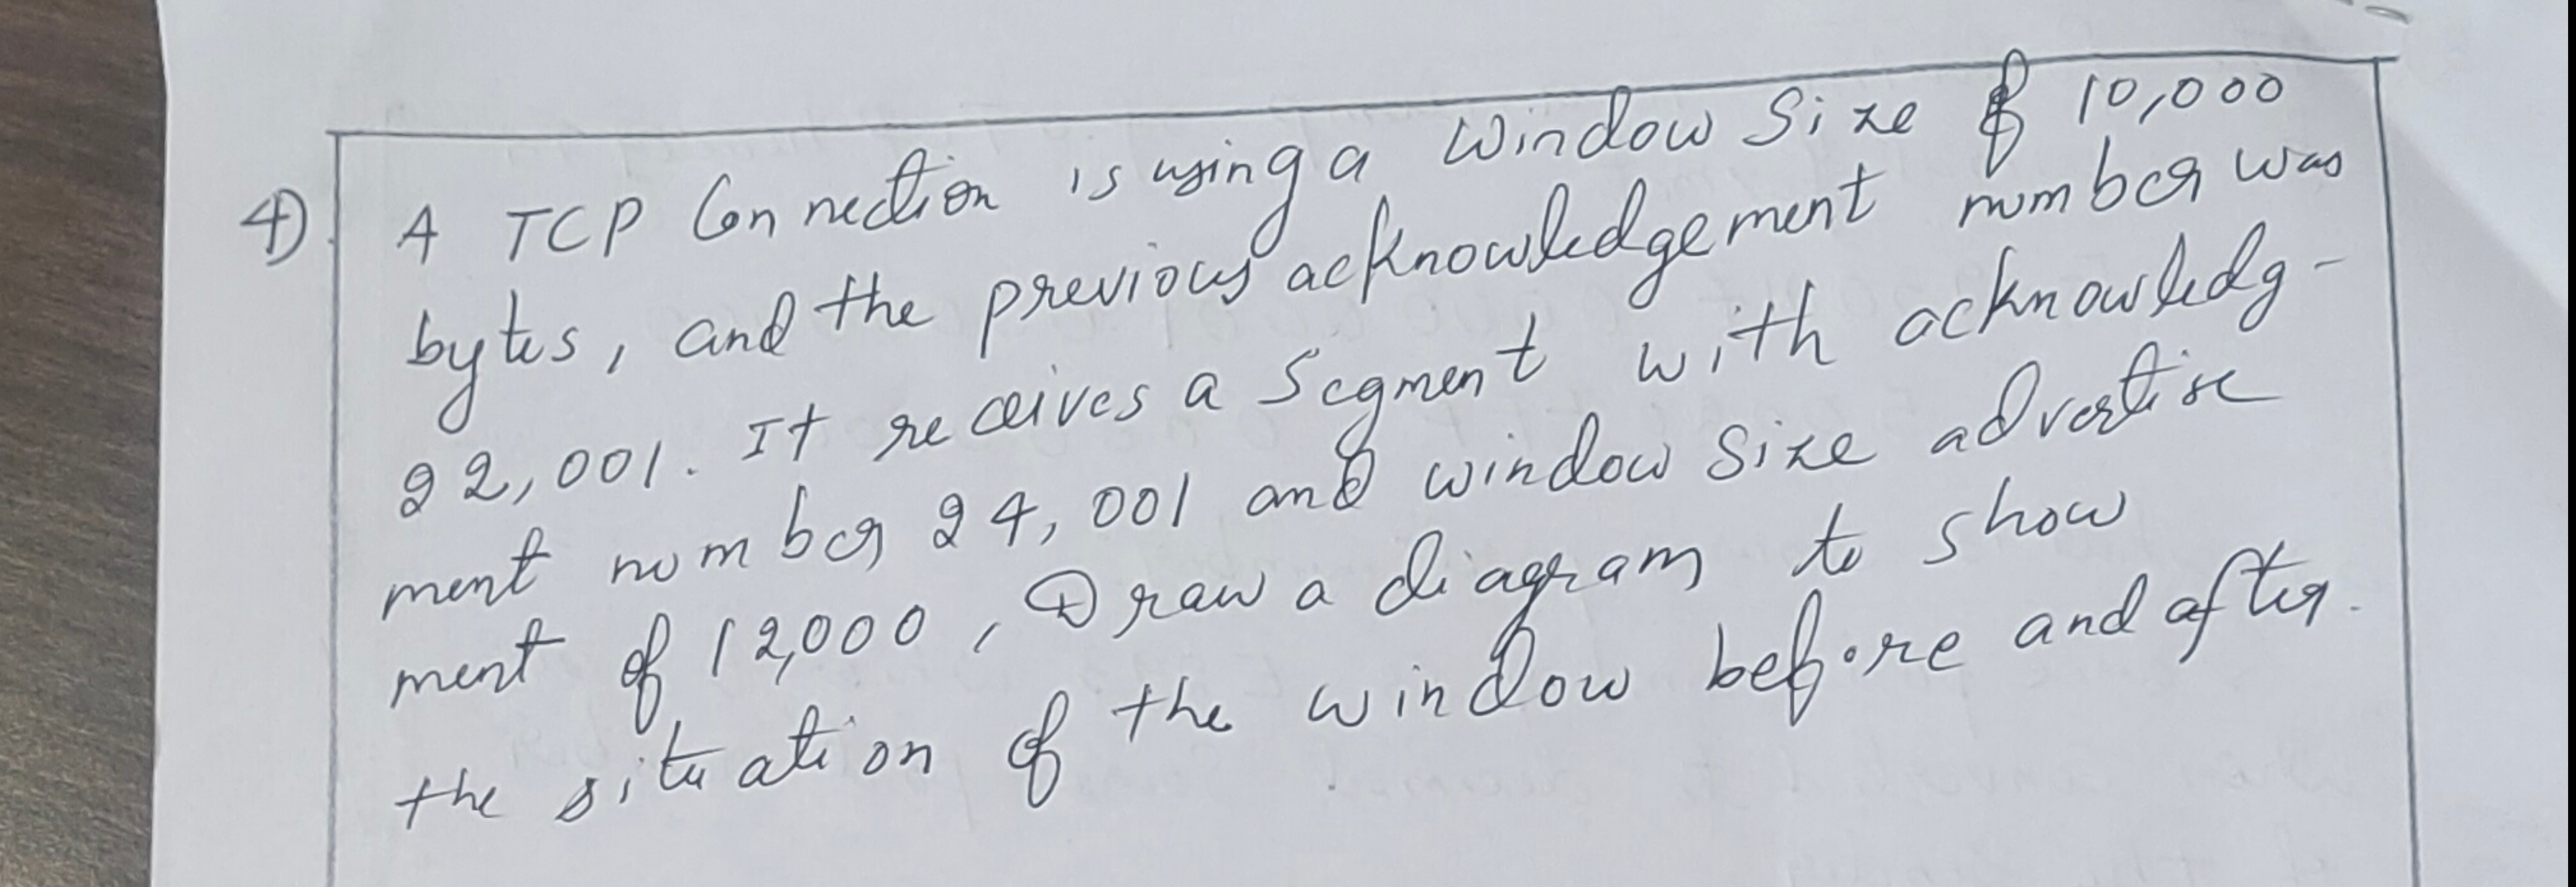 4). A TCP Connection is using a Window Size of 10,000
bytes, and the previous acknowledgement number was
22,001. It receives a Segment with acknowledg-
ment number 24,001 and window Size advertise
ment of 12,000, Draw a diagram to show
the situation of the window before and after.